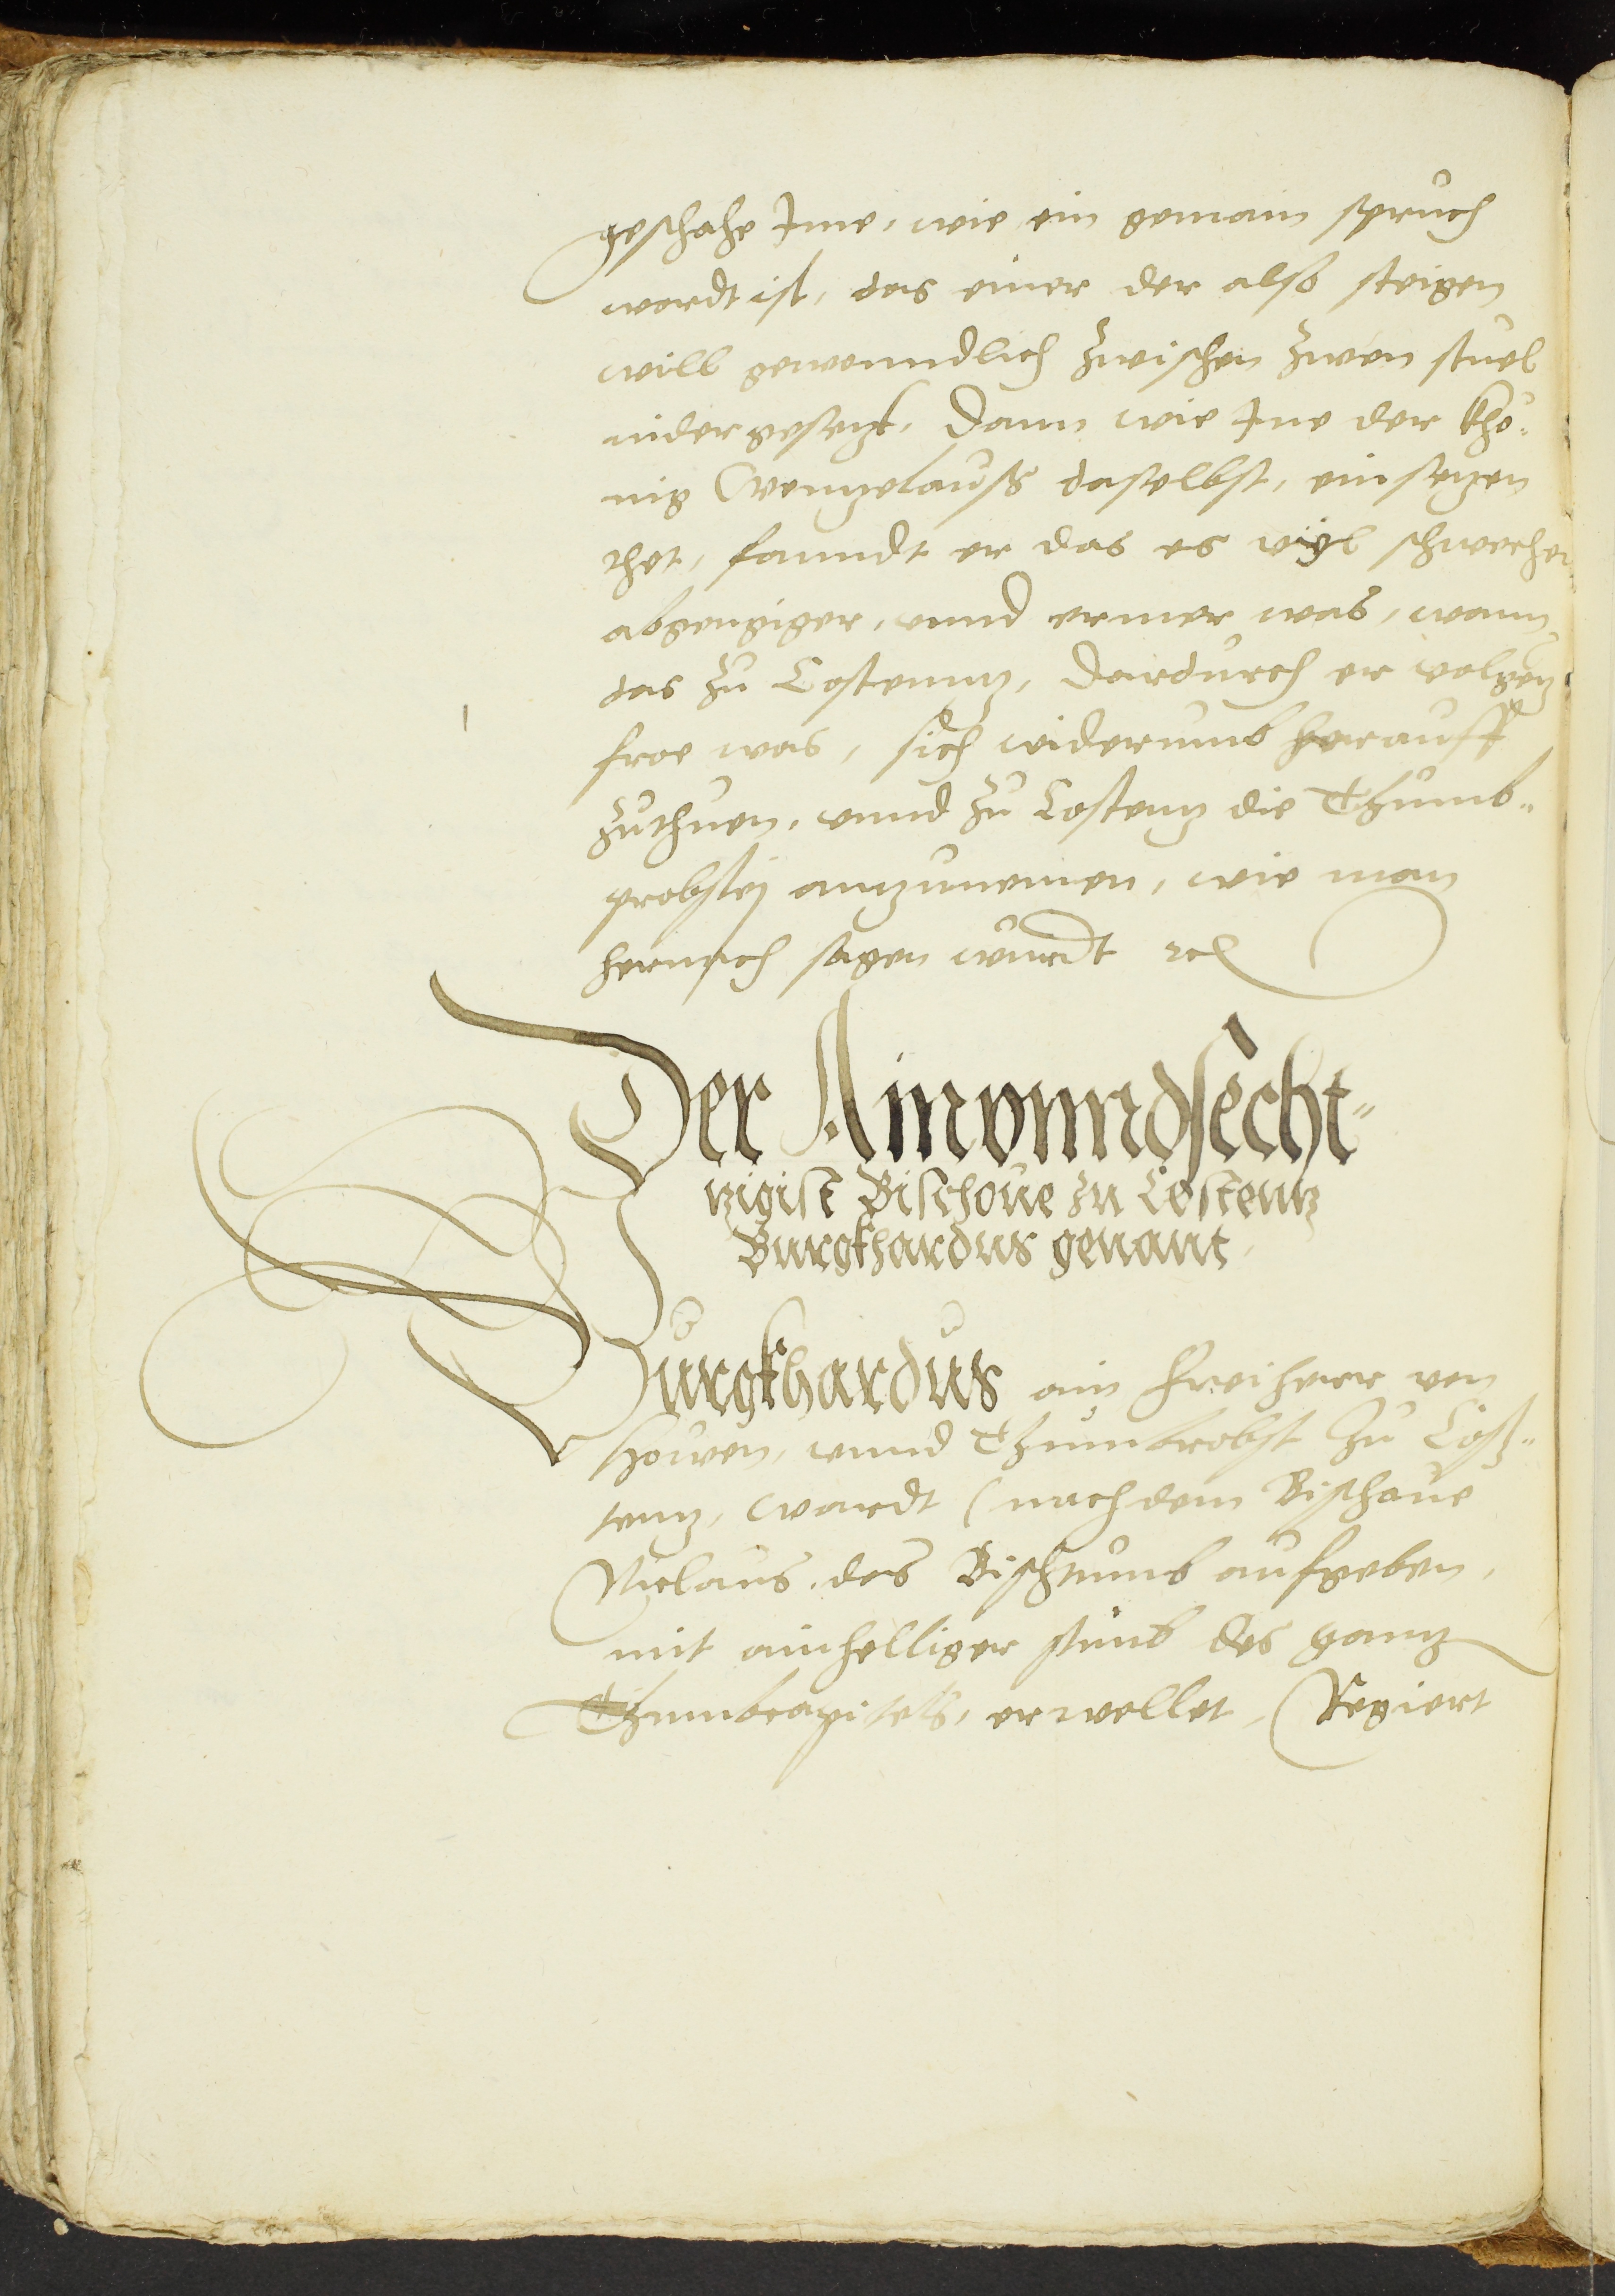 geschahe Ime, wie ein gemain spruch
wordt ist, das einer der also steigen
will gewonndlich zwischen zwen stuel
nidergesetzt, Dann wie Ine der Khö¬
nig Wentzelauß daselbst, einsetzen
thet, fanndt er das es viel schwecher
abgengiger, vnnd ermer was, wann
das zu Costenntz, Dardurch er volgentz
froe was, sich widerumb herauff
zuthuen, vnnd zu Costentz die Thumb¬
probstej anzunemen, wie man
hernach sagen wurdt etc
Der Ainvnndsecht¬
tzigist Bischoue zu Costentz
Burgkhardus genant
Burgkhardus ain Freiherr von
Howen, vnnd Thumbrobst zu Cosß¬
tentz, wardt (nachdem Bischoue
Niclaus, das Bischtumb aufgeben,
mit ainhelliger stimb des gantz
Thumbcapitels, erwellet, Regiert